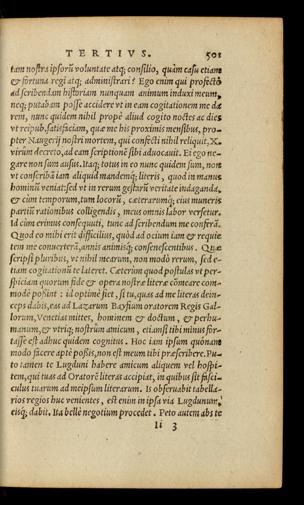 TERTIVS. 501
tam nostra ipsorū voluntate atq; consilio, quàm casu etiam
& fortuna regi atq; administrari? Ego enim qui profectò
ad scribendam historiam nunquam animum induxi meum,
neq; putabam posse accidere vt in eam cogitationem me da
rem, nunc quidem nihil propè aliud cogito noctes ac dies
vt reipub. satisfaciam, quæ me his proximis mensibus, pro-
pter Naugerij nostri mortem, qui confecti nihil reliquit, X.
virûm decreto, ad eam scriptionē sibi aduocauit. Et ego ne-
gare non sum ausus. Itaq; totus in eo nunc quidem sum, non
vt conscribā iam aliquid mandemq; literis, quod in manus
hominū veniat: sed vt in rerum gestarū veritate indaganda,
& cùm temporum, tum locorū, cæterarumq; eius muneris
partiū rationibus colligendis, meus omnis labor versetur.
Id cùm erimus consequuti, tunc ad scribendum me conferā.
Quod eo mihi erit difficilius, quòd ad ocium iam & requie
tem me conuerterā, annis animisq; consenescentibus. Quæ
scripsi pluribus, vt nihil mearum, non modò rerum, sed e-
tiam cogitationū te lateret. Cæterùm quod postulas vt per-
spiciam quorum fide & opera nostræ literæ cōmeare com-
modè poßint: id optimè fiet, si tu, quas ad me literas dein-
ceps dabis, eas ad Lazarum Bayfium oratorem Regis Gal-
lorum, Venetias mittes, hominem & doctum, & perhu-
manum, & vtriq; nostrûm amicum, etiamsi tibi minus for-
tasse est adhuc quidem cognitus. Hoc iam ipsum quónam
modo facere aptè poßis, non est meum tibi præscribere. Pu-
to tamen te Lugduni habere amicum aliquem vel hospi-
tem, qui tuas ad Oratorē literas accipiat, in quibus sit fasci-
culus tuarum ad meipsum literarum. Is obseruabit tabella-
rios regios huc venientes, est enim in ipsa via Lugdunum,
eisq; dabit. Ita bellè negotium procedet. Peto autem abs te
Ii 3